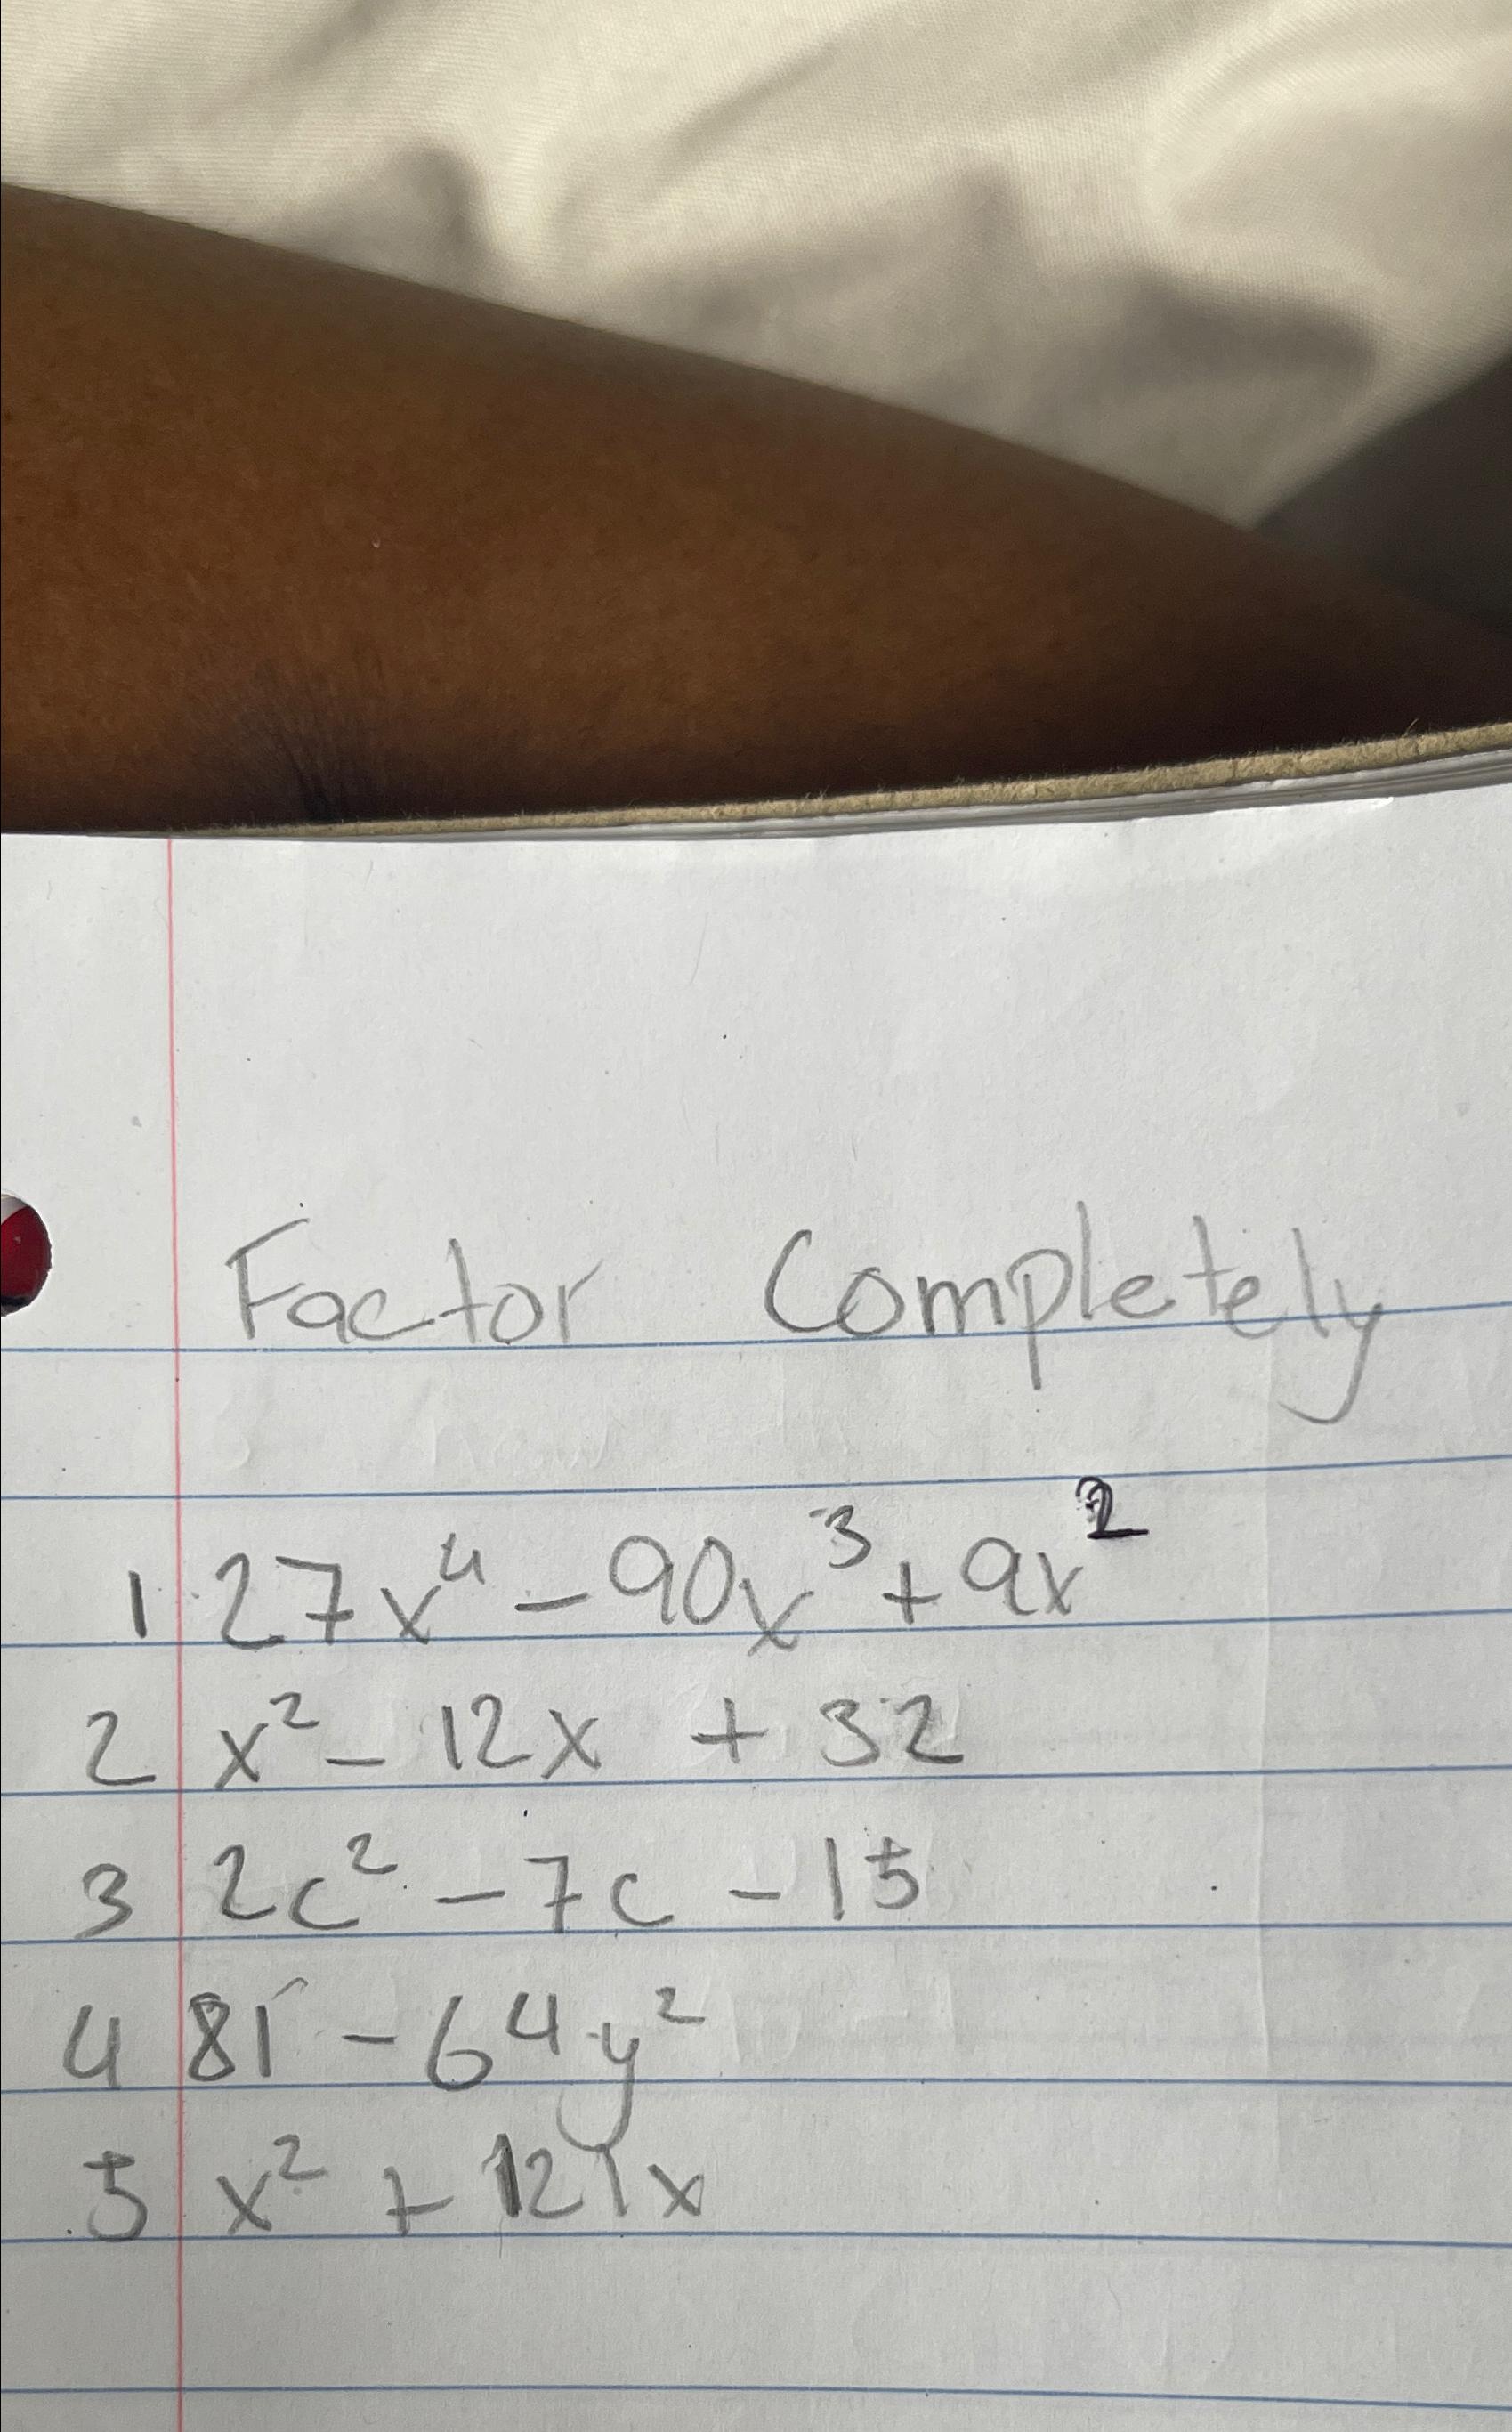 Factor Completely
1 27x⁴ - 90x³ + 9x²
2 x² - 12x + 32
3 2c² - 7c - 15
4 81 - 64y²
5 x² + 121x